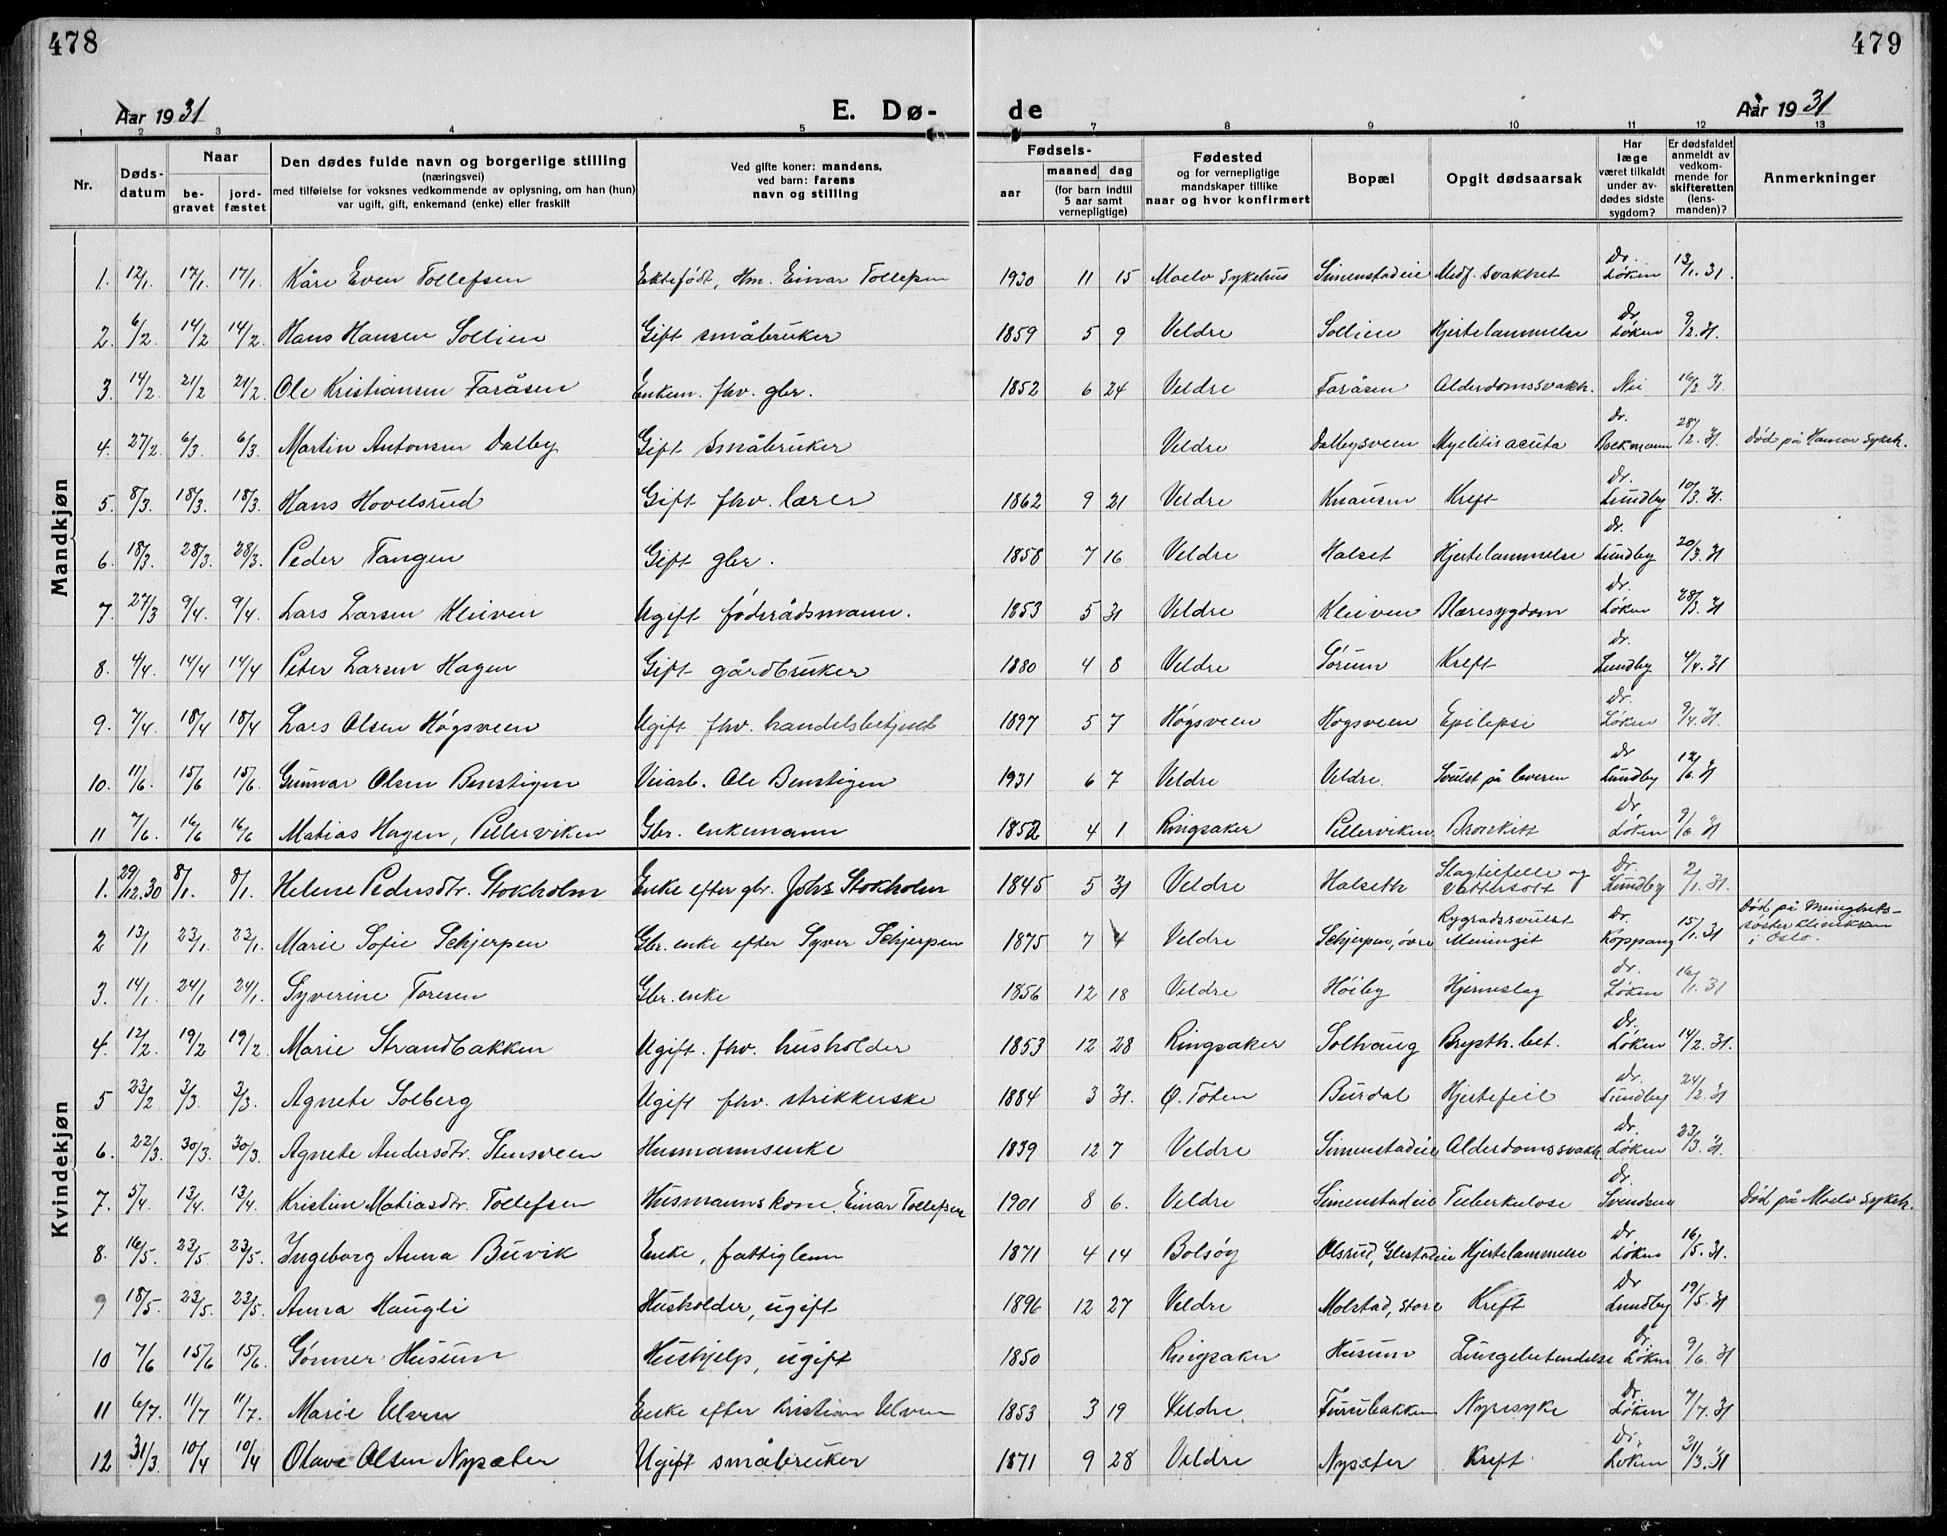 478
479
Aar 1931
E. Dø-
de
Aar 1931
1 2 3 4 5 7 8 9 10 11 12 13
Nr.
Døds-datum
Naar
be-gravet
jord-fæstet
Den dødes fulde navn og borgerlige stilling
(næringsvei)
med tilføielse for voksnes vedkommende av oplysning, om han (hun)
var ugift, gift, enkemand (enke) eller fraskilt
Ved gifte koner: mandens,
ved barn: farens
navn og stilling
Fødsels-
aar
maaned dag
(for barn indtil
5 aar samt
vernepligtige)
Fødested
og for vernepligtige
mandskaper tillike
naar og hvor konfirmert
Bopæl
Opgit dødsaarsak
Har
læge
været tilkaldt
under av-
dødes sidste
sygdom?
Er dødsfaldet
anmeldt av
vedkom-
mende for
skifteretten
(lens-
manden)?
Anmerkninger
Mandkjøn
1. 12/1. 17/1. 17/1. Kåre Even Tollefsen Ektefødt, Hm. Einar Tollefsen 1930 11 15 Moelv Sykehus Simenstadeie Medf. svakhet Dr. Løken 13/1. 31.
2. 6/2. 14/2 14/2. Hans Hansen Sollien Gift småbruker 1859 5 9 Veldre Sollien Hjertelammelse Dr. Løken 9/2. 31.
3. 14/2. 21/2 21/2. Ole Kristiansen Faråsen Enkem. fhv. gbr. 1852 6 24 Veldre Faråsen Alderdomssvakh. Nei 16/2 31.
4. 27/2. 6/3. 6/3. Martin Antonsen Dalby Gift Småbruker Veldre Dalbysveen Myelitis acuta dr. Bockmann 28/2. 31. Død på Hamar sykeh.
5. 8/3. 18/3. 18/3. Hans Hovelsrud Gift fhv. lærer 1862 9 21 Veldre Knausen Kreft dr. Lundby 10/3. 31.
6. 18/3. 28/3. 28/3. Peder Tangen Gift gbr. 1858 7 16 Veldre Halset Hjertelammelse dr. Lundby 20/3. 31
7. 27/3 9/4. 9/4. Lars Larsen Kleiven Ugift føderådsmann. 1853 5 31 Veldre Kleiven Blæresygdom dr. Løken 28/3. 31
8. 4/4. 14/4 14/4 Peter Larsen Hagen Gift gårdbruker 1880 4 8 Veldre Sørum Kreft dr. Lundby 4/4. 31
9. 7/4. 18/4 18/4 Lars Olsen Høgsveen Ugift fhv. handelsbetjent 1897 5 7 Høgsveen Høgsveen Epilepsi dr. Løken 9/4. 31.
10. 11/6. 15/6 15/6. Gunnar Olsen Benstigen Veiarb. Ole Benstigen 1931 6 7 Veldre Veldre. Svulst på leveren dr Lundby 12/6. 31
11 7/6. 16/6 16/6 Matias Hagen, Pellerviken Gbr. enkemann 1852 4 1 Ringsaker Pellerviken Bronkitt dr. Løken 9/6 31
Kvindekjøn
1. 29/12.30 8/1. 8/1. Helene Pedersdtr. Stokholm Enke efter gbr. Johs Stokholm 1845 5 31 Veldre Halseth Slagtilfelle og Vattersott dr Lundby 2/1. 31.
2 13/1 23/1. 23/1. Marie Sofie Schjerpen Gbr. enke efter Syver Schjerpen 1875 7 4 Veldre Schjerpen, øvre Rygradssvulst Meningit dr. Koppang 15/1. 31 Død på Menighets-søster klinikken i Oslo.
3. 14/1. 24/1 24/1. Syverine Toresen Gbr. enke 1856 12 18 Veldre Høiby Hjerneslag dr. Løken 16/1. 31
4. 12/2. 19/2 19/2. Marie Strandbakken Ugift. fhv. husholder 1853 12 28 Ringsaker Solhaug Brysth. bet. Dr. Løken 14/2. 31.
5 23/2 3/3. 3/3. Agnete Solberg Ugift fhv. strikkerske 1884 3 31. Ø. Toten Burdal Hjertefeil dr. Lundby 24/2. 31
6. 22/3. 30/3. 30/3. Agnete Andersdtr. Stensveen Husmannsenke 1839 12 7 Veldre Simenstadeie Alderdomssvakh. Dr. Løken 23/3. 31.
7. 5/4. 13/4. 13/4. Kristine Matiasdtr. Tollefsen Husmannskone. Einar Tollefsen 1901 8 6. Veldre Simenstadeie Tuberkulose dr. Svendsen Død på Moelv sykeh.
8. 16/5. 23/5. 23/5. Ingeborg Anna Buvik Enke, fattiglem 1871 4 14 Bolsøy Olsrud, Glestadeie Hjertelammelse Dr Løken 16/5. 31.
9 18/5. 23/5. 23/5. Anna Haugli Husholder, ugift 1896 12 27 Veldre Molstad, store Kreft Dr Lundby 19/5. 31
10 7/6 15/6 15/6. Gønner Husum Hushjelp, ugift 1850 Ringsaker Husum Lungebetendelse Dr. Løken 9/6. 31
11 6/7. 11/7 11/7. Marie Ulven Enke efter Kristian Ulven 1853 3 19 Veldre. Furubakken Nyresyke Dr. Løken 7/7. 31
12 31/3. 10/4 10/4 Olave Olsen Nysæter Ugift småbruker 1871 9 28 Veldre Nysæter Kreft Dr. Løken 31/3. 31